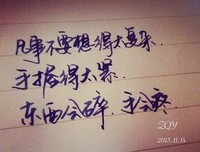 凡事不要想得太复杂
手握得太紧
东西会碎，手会疼
ZQY
2013.11.14